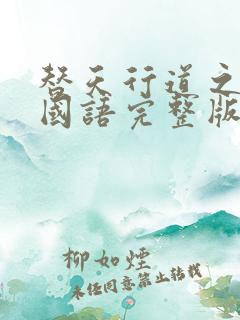 替天行道之
國語完整版
柳如煙
未经同意禁止转载